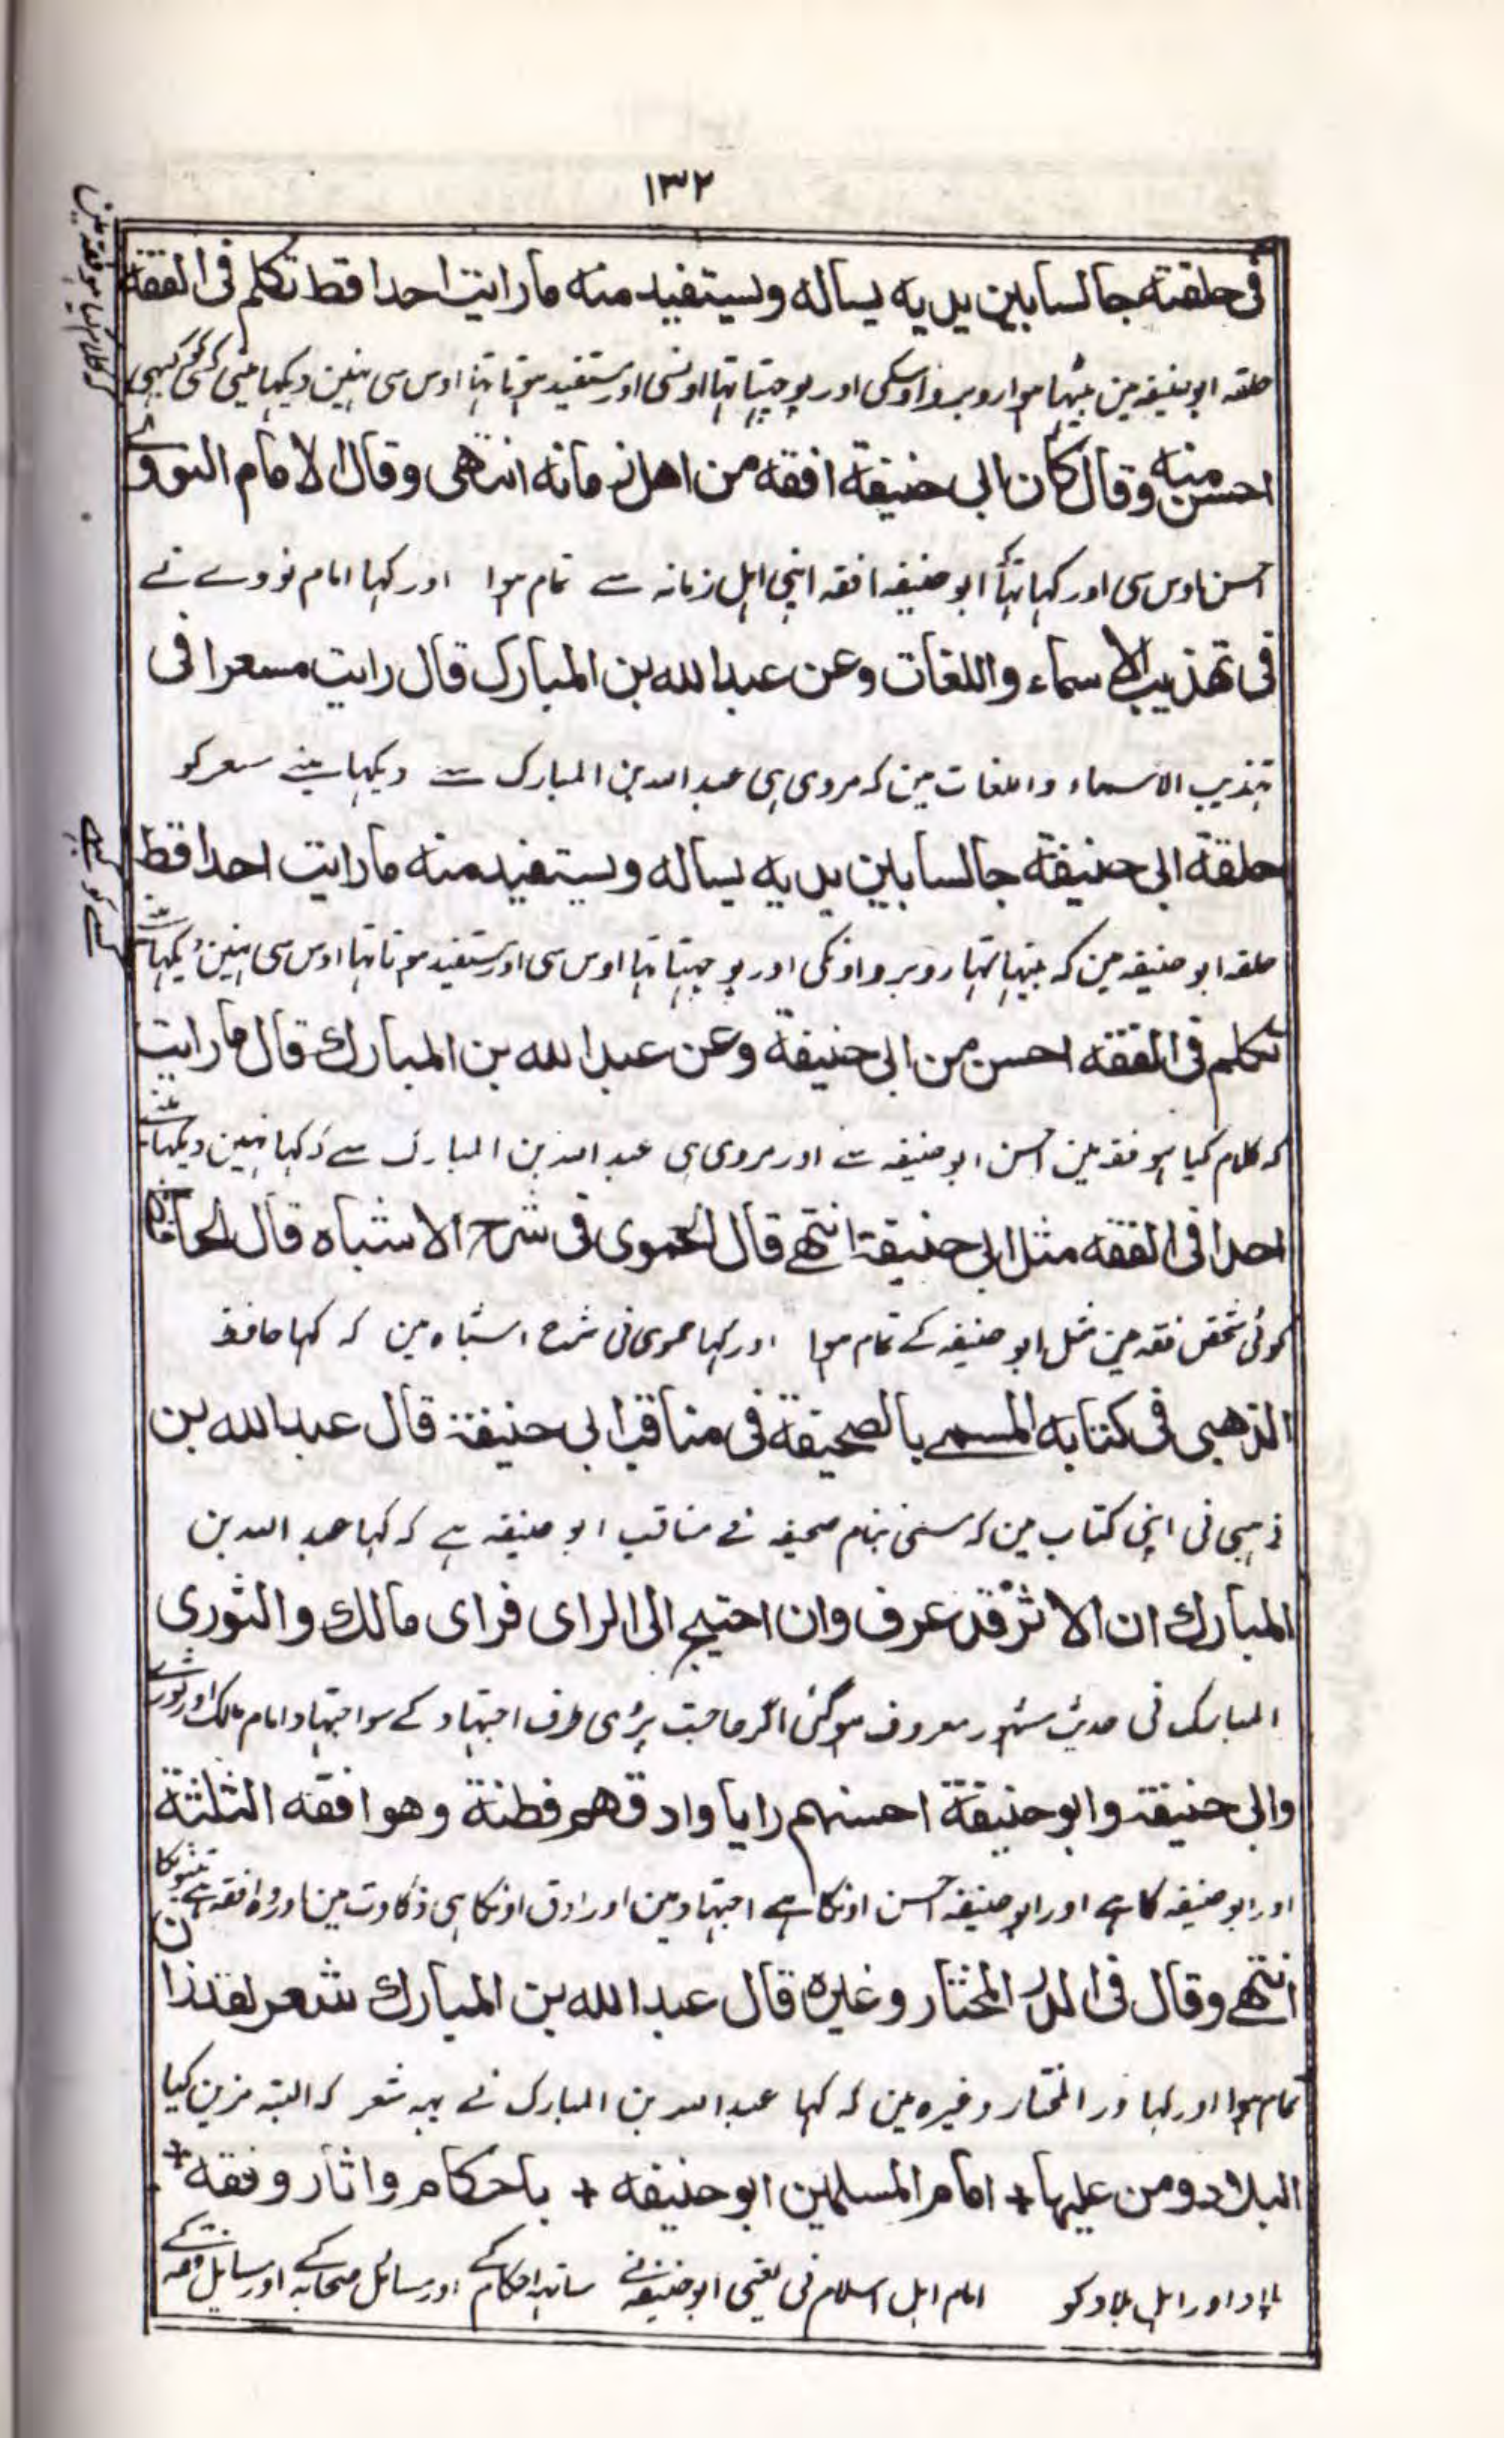 ١٣٢
فی حلقته جالسا بین یدیه یساله ویستفید منه ما رایت احدا قط تکلم فی الفقه
حلقه ابو حنیفہ مین بیٹھا ہوا روبرو اوسکی اور پوچہتا تہا اونسی اور مستفید ہوتا تہا اوس سی نہین دیکہا مینی کسی کو کبہی
کہ کلام کیا ہو فقہ مین
احسن منه وقال کان ابی حنیفة افقه من اهل زمانه انتهی وقال الامام النووی
احسن اوس سی اور کہا تہا کہ ابو حنیفہ افقہ اپنی اہل زمانہ سے تمام ہوا اور کہا امام نووے نے
فی تهذیب الاسماء واللغات وعن عبدالله بن المبارک قال رایت مسعرا فی
تہذیب الاسماء واللغات مین کہ مروی ہی عبداللہ بن المبارک سے دیکہا مینے مسعر کو
حلقة ابی حنیفة جالسا بین یدیه یساله ویستفید منه ما رایت احدا قط
حلقہ ابو حنیفہ مین کہ بیٹہا تہا روبرو اونکی اور پوچہتا تہا اوس سی اور مستفید ہوتا تہا اوس سی نہین دیکہا مینے
کسے کو کبہی
تکلم فی الفقه احسن من ابی حنیفة وعن عبدالله بن المبارک قال ما رایت
کہ کلام کیا ہو فقہ مین احسن ابو حنیفہ سے اور مروی ہی عبداللہ بن المبارک سے کہ کہا نہین دیکہا مینے
احدا فی الفقه مثل ابی حنیفة انتهے قال الحموی فی شرح الاشباه قال الحافظ
کوئی شخص فقہ مین مثل ابو حنیفہ کے تمام ہوا اور کہا حموی نی شرح اشباہ مین کہ کہا حافظ
الذهبی فی کتابه المسمے بالصحیفة فی مناقب ابی حنیفة قال عبدالله بن
ذہبی نی اپنی کتاب مین کہ مسمی بنام صحیفہ فے مناقب ابو حنیفہ ہے کہ کہا عبد اللہ بن
المبارک ان الاثر قد عرف وان احتیج الی الرای فرای مالک والثوری
المبارک نی حدیث مشہور معروف ہو گئی اگر حاجت پڑی طرف اجتہاد کے سوا جتہاد امام مالک اور ثوری
وابی حنیفة وابو حنیفة احسنهم رایا وادقهم فطنة وهو افقه الثلثة
اور ابو حنیفہ کا ہے اور ابو حنیفہ احسن اونکا ہے اجتہاد مین اور ادق اونکا ہی ذکاوت مین اور وہ افقہ ہے تینونکا
انتهے وقال فی الدر المختار وغیره قال عبدالله بن المبارک شعر لقد زان
تمام ہوا اور کہا در المختار وغیرہ مین کہ کہا عبداللہ بن المبارک نے یہہ شعر کہ البتہ مزین کیا
البلاد ومن علیها + امام المسلمین ابو حنیفه + باحکام واثار وفقه +
بلاد اور اہل بلاد کو امام اہل اسلام نی یعنی ابو حنیفہ نے ساتہہ احکام کے اور مسائل صحابہ کے اور مسایل فقہ کے